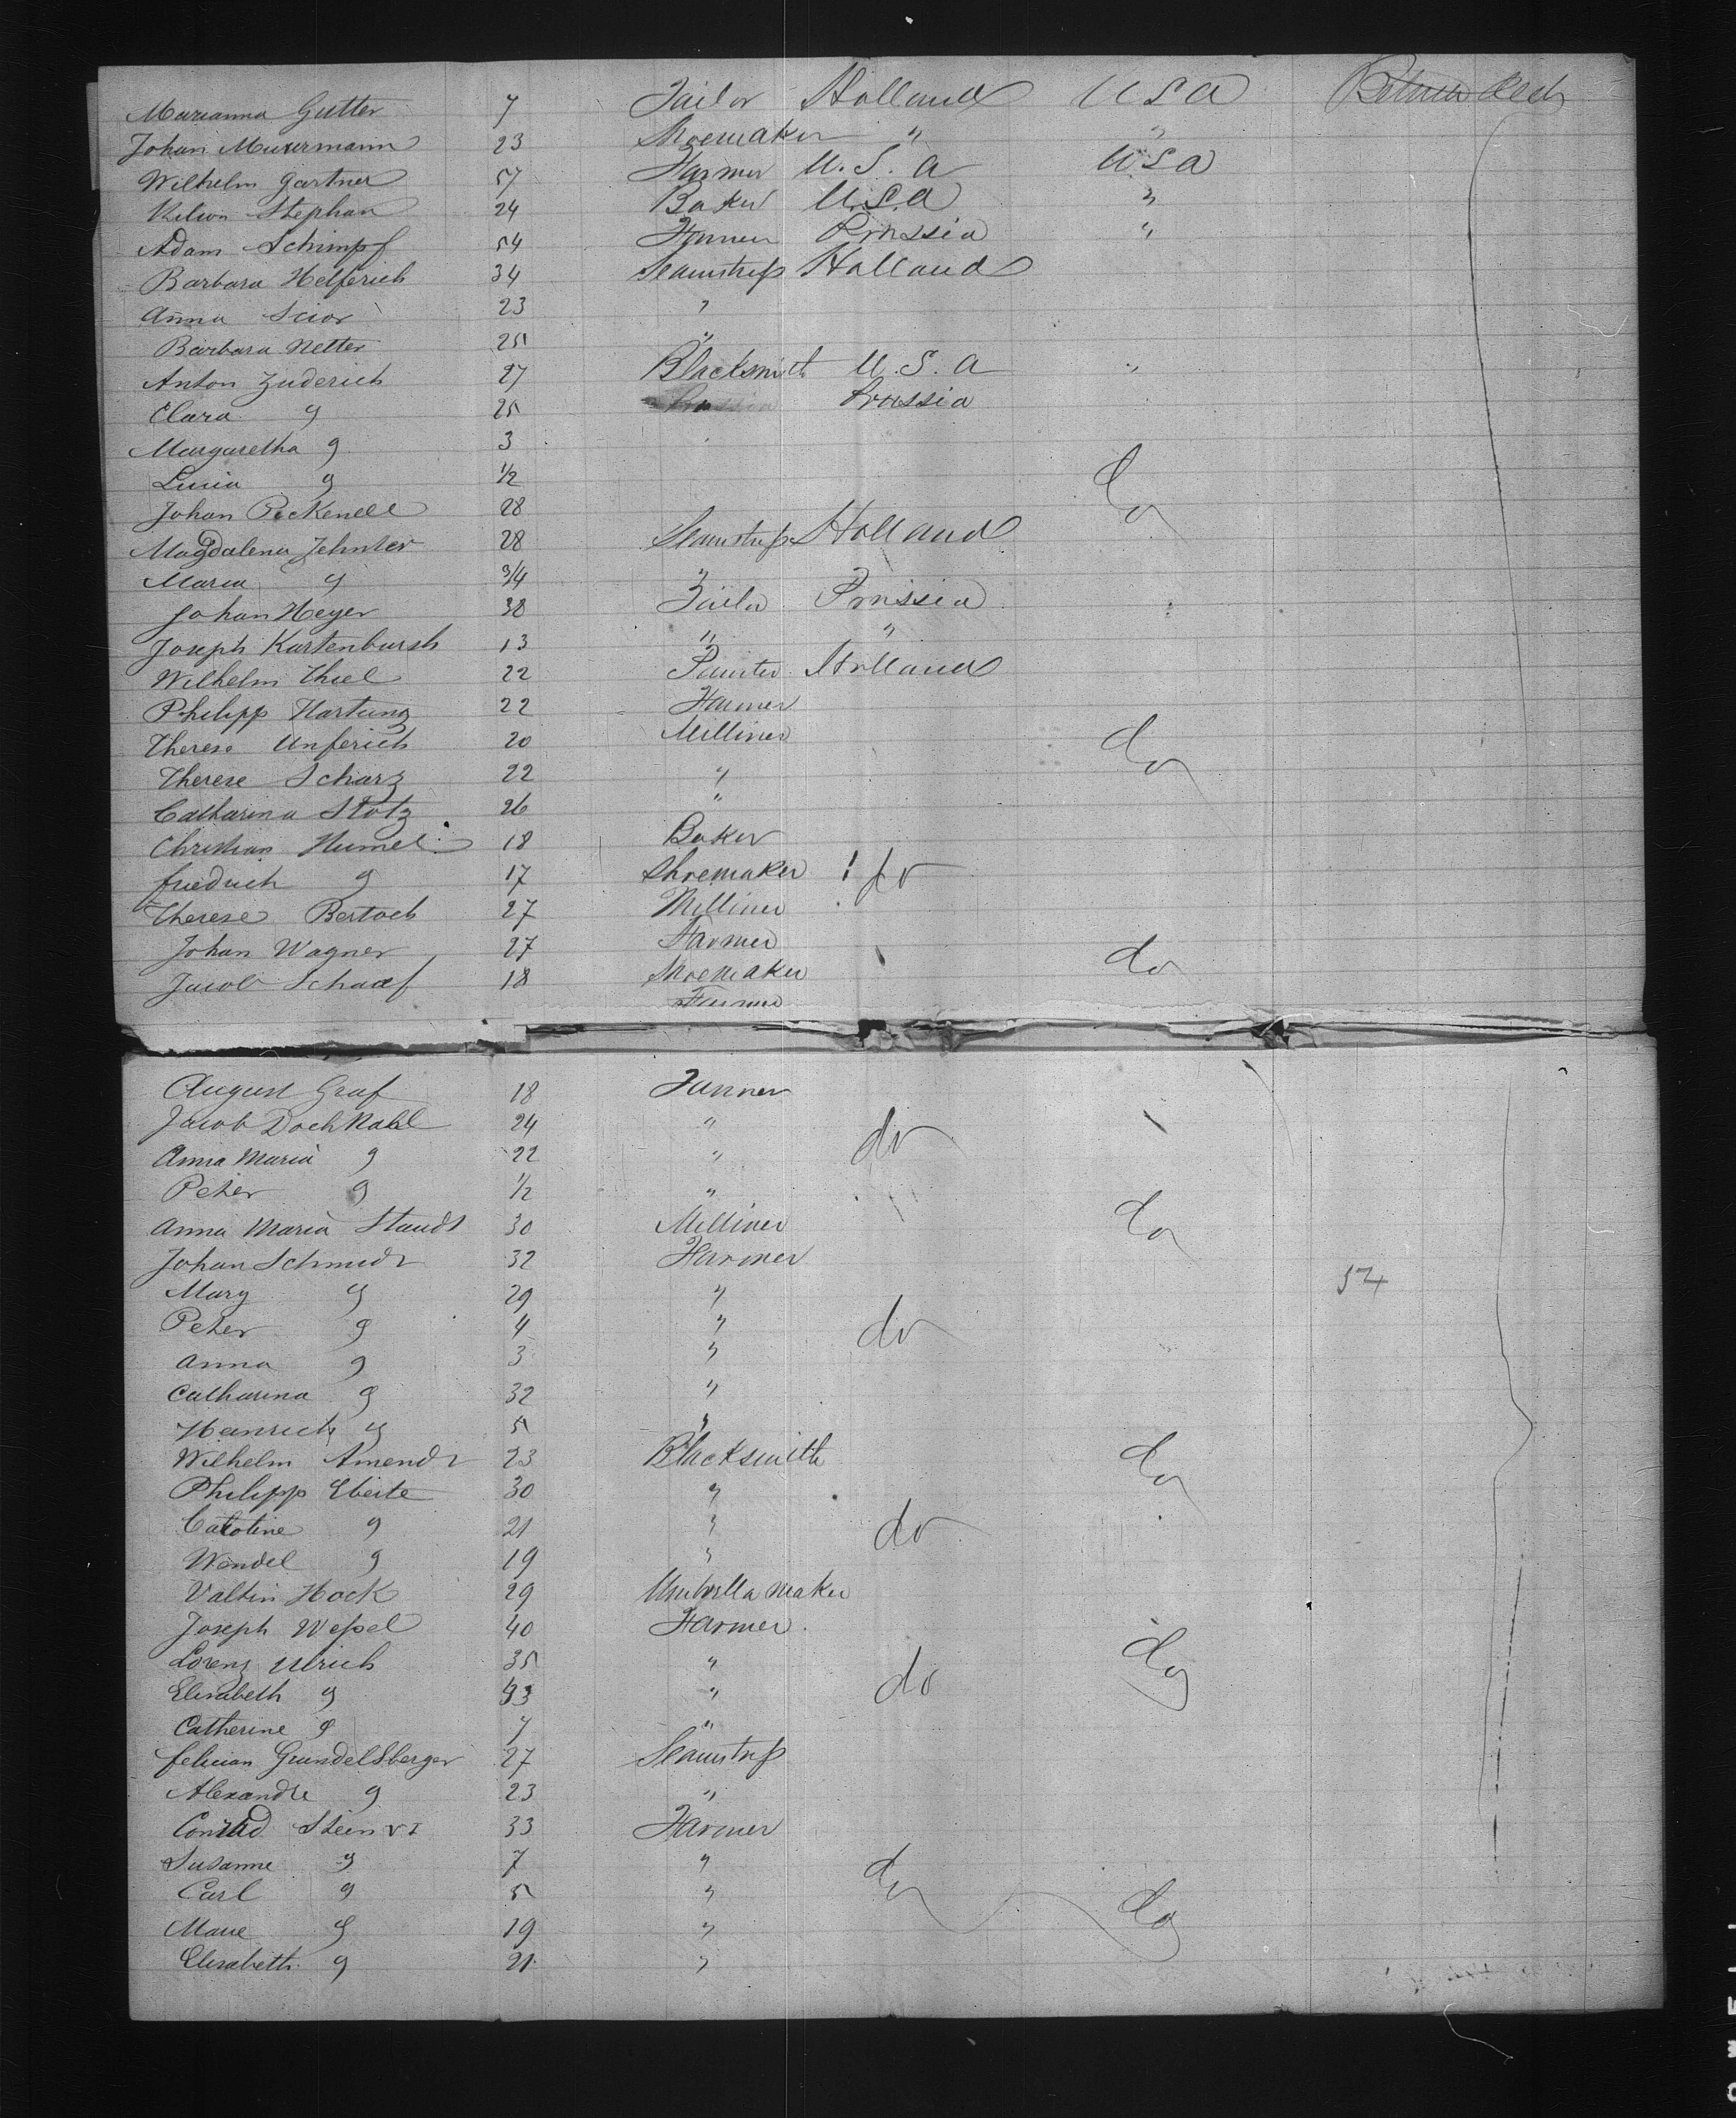 Marianna Gutter 7 Tailor Holland USA Between Deck
Johan Muxermann 23 Shoemaker " "
Wilhelm Gartner 57 Farmer U.S.A USA
Kilion Stephan 24 Baker U.S.A "
Adam Schimpf 54 Farmer Prussia "
Barbara Helferich 34 Seamstress Holland
Anna Scior 23 "
Barbara Netter 25 "
Anton Zuderich 27 Blacksmith U.S.A "
Clara " 25 Prussia
Margaretha " 3
Lucia " 1/2 do
Johan Peckenell 28
Magdalena Zehnter 28 Seamstress Holland
Maria " 3/4 "
Johan Heyer 38 Tailor Prussia
Joseph Kartenbursh 13 " "
Wilhelm Thiel 22 Painter Holland
Philipp Hartung 22 Farmer
Therese Unferich 20 Milliner do
Therese Scharz 22 "
Catharina Stotz 26 "
Christian Humel 18 Baker
friedrich " 17 Shoemaker do
Therese Bertoch 27 Milliner
Johan Wagner 27 Farmer do
Jacob Schaaf 18 Shoemaker
Farmer
August Graf 18 Farmer
Jacob Dochnahl 24 " do
Anna Maria " 22 "
Peter " 1/2 "
Anna Maria Staudt 30 Milliner do
Johan Schmidt 32 Farmer
54
Mary " 29 "
Peter " 4 " do
Anna " 3 "
Catharina " 32 "
Heinrich " 5 "
Wilhelm Amendt 23 Blacksmith do
Philipp Eberle 30 "
Caroline " 21 " do
Wendel " 19 "
Valtin Hock 29 Umbrella maker
Joseph Wessel 40 Farmer
Lorenz Ulrich 35 " do
Elisabeth " 33 " do
Catherine " 7 "
felician Grundelsberger 27 Seamstress
Alexandre " 23 "
Conrad Stein VI 33 Farmer
Susanne " 7 " do
Carl " 5 " do
Marie " 19 "
Elisabeth " 21 "